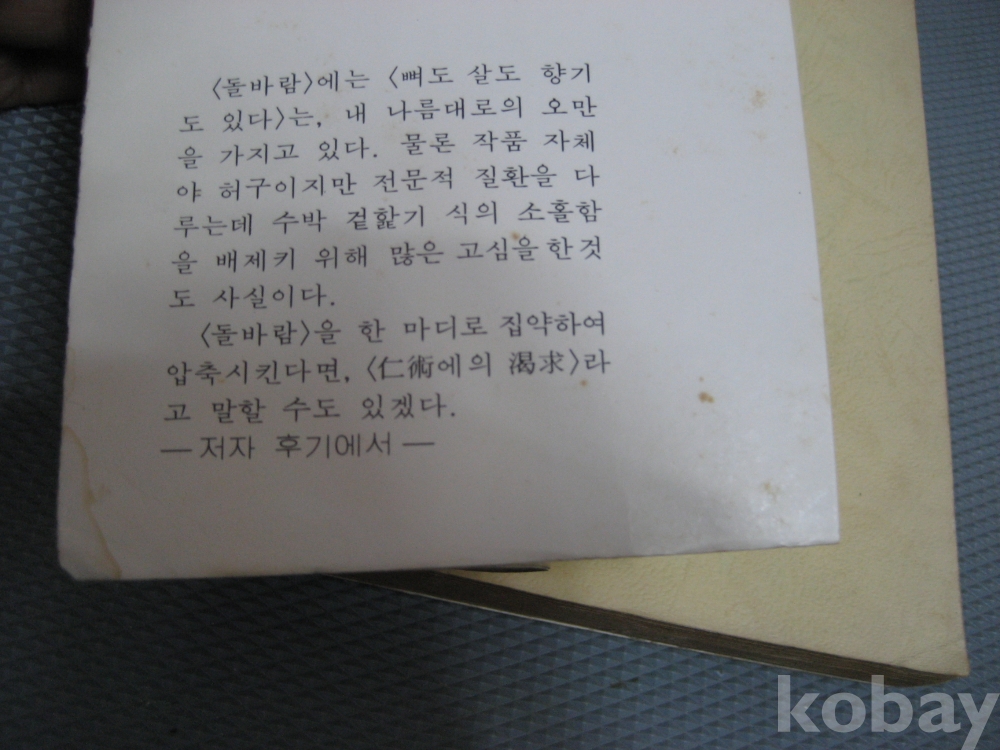 〈돌바람〉에는 〈뼈도 살도 향기
도 있다〉는, 내 나름대로의 오만
을 가지고 있다. 물론 작품 자체
야 허구이지만 전문적 질환을 다
루는데 수박 겉핥기 식의 소홀함
을 배제키 위해 많은 고심을 한것
도 사실이다.
〈돌바람〉을 한 마디로 집약하여
압축시킨다면, 〈仁術에의 渴求〉라
고 말할 수도 있겠다.
— 저자 후기에서 —
kobay